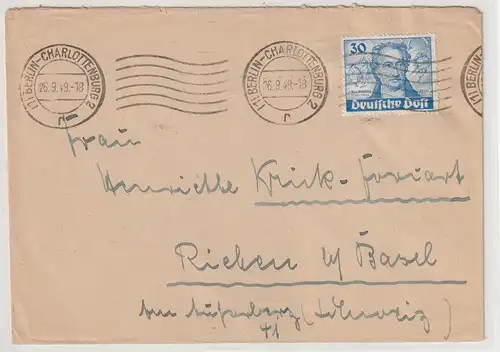 (1) BERLIN-CHARLOTTENBURG 2
26.9.49.-18
r
(1) BERLIN-CHARLOTTENBURG 2
26.9.49.-18
r
30
Deutsche Post
(1) BERLIN-
Frau
Henriette Krick-Forcart
Riehen b/ Basel
(Schweiz)
41